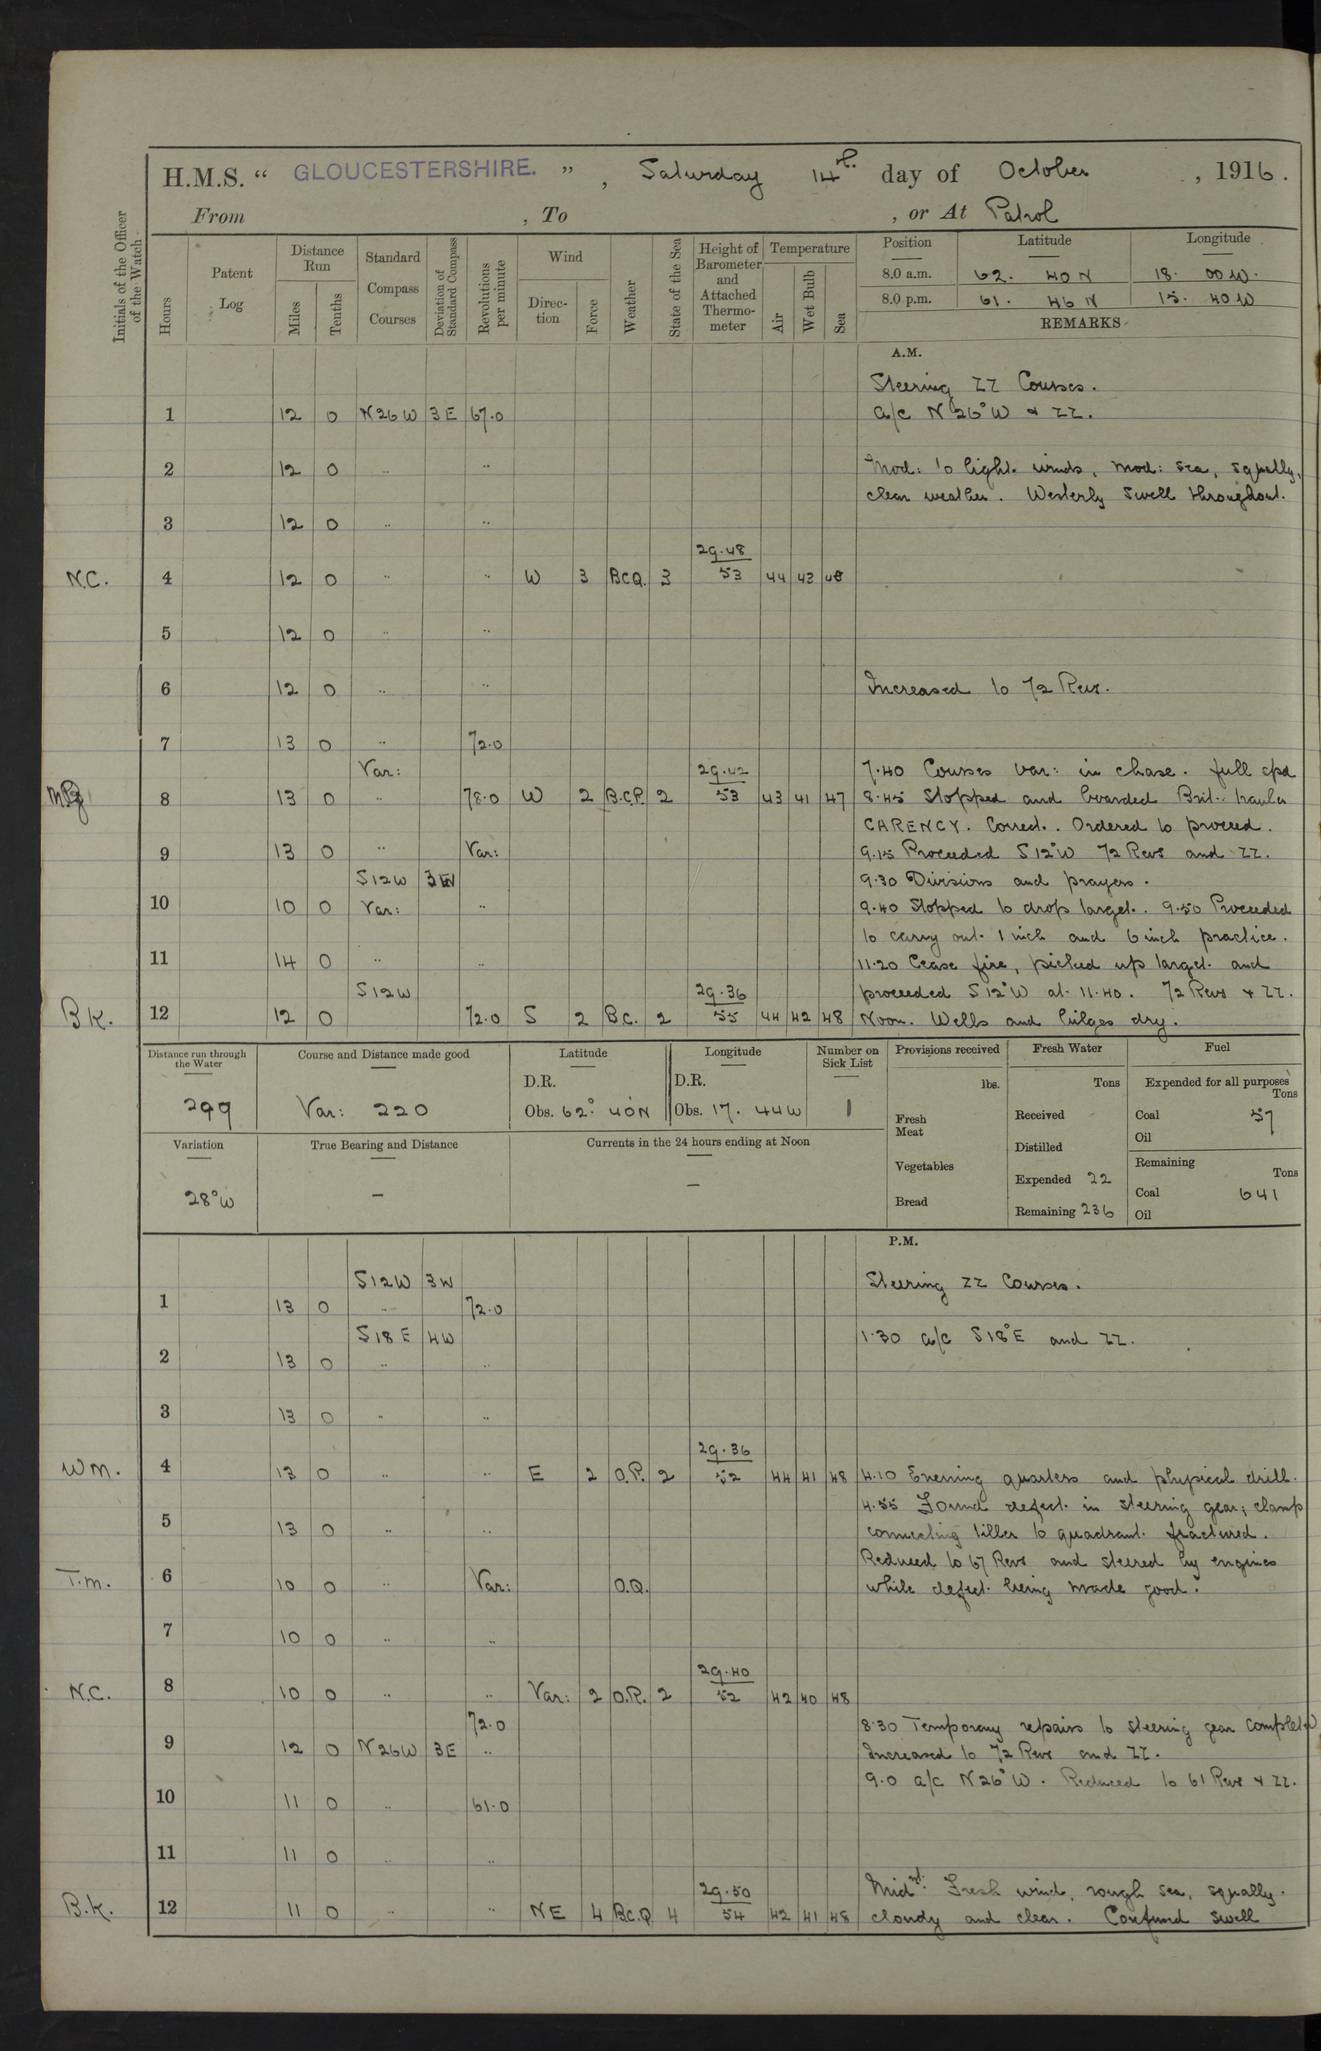 H.M.S. “ GLOUCESTERSHIRE. ” , Saturday 14th day of October , 1916.
From , To , or At Patrol
Initials of the Officer of the Watch
Hours
Patent Log
Distance Run
Miles
Tenths
Standard Compass Courses
Deviation of Standard Compass
Revolutions per minute
Wind
Direction
Force
Weather
State of the Sea
Height of Barometer and Attached Thermometer
Temperature
Air
Wet Bulb
Sea
Position Latitude Longitude
8.0 a.m. 62. 40 N 18. 00 W.
8.0 p.m. 61. 46 N 15. 40 W
REMARKS
A.M.
Steering ZZ Courses.
1 12 0 N26W 3E 67.0 a/c N 26° W & ZZ.
2 12 0 .. .. Mod: to light winds, mod: sea, squally,
clear weather. Westerly Swell throughout.
3 12 0 .. ..
29.48
N.C. 4 12 0 .. .. W 3 B.C.Q. 3 53 44 43 48
5 12 0 .. ..
6 12 0 .. .. Increased to 72 Revs.
7 13 0 .. 72.0
Var: 29.42 7.40 Courses var: in chase. full spd
8 13 0 .. 78.0 W 2 B.C.P. 2 53 43 41 47 8.45 Stopped and boarded Brit. trawler
CARENCY. Correct. Ordered to proceed.
9 13 0 .. Var: 9.15 Proceeded S12°W 72 Revs and ZZ.
S12W 3W 9.30 Divisions and prayers.
10 10 0 Var: .. 9.40 Stopped to drop target. 9.50 Proceeded
to carry out 1 inch and 6 inch practice.
11 14 0 .. .. 11.20 Cease fire, picked up target and
S12W 29.36 proceeded S12°W at 11.40. 72 Revs & ZZ.
B.K. 12 12 0 72.0 S 2 B.C. 2 55 44 42 48 Noon. Wells and bilges dry.
Distance run through the Water
299
Course and Distance made good
Var: 220
Latitude
D.R.
Obs. 62° 40' N
Longitude
D.R.
Obs. 17. 44 W
Number on Sick List
1
Provisions received
lbs.
Fresh Meat
Vegetables
Bread
Fresh Water
Tons
Received
Distilled
Expended 22
Remaining 236
Fuel
Expended for all purposes
Tons
Coal 57
Oil
Remaining
Tons
Coal 641
Oil
Variation
28°W
True Bearing and Distance
–
Currents in the 24 hours ending at Noon
–
P.M.
S12W 3W Steering ZZ Courses.
1 13 0 .. 72.0
S18E 4W 1.30 a/c S18°E and ZZ.
2 13 0 .. ..
3 13 0 .. ..
29.36
W.M. 4 13 0 .. .. E 2 O.P. 2 52 44 41 48 4.10 Evening quarters and physical drill.
4.55 Found defect in steering gear; clamp
5 13 0 .. .. connecting tiller to quadrant fractured.
Reduced to 67 Revs and steered by engines
T.M. 6 10 0 .. Var: O.Q. while defect being made good.
7 10 0 .. ..
29.40
N.C. 8 10 0 .. .. Var: 2 O.R. 2 52 42 40 48
72.0 8.30 Temporary repairs to steering gear completed
9 12 0 N26W 3E .. Increased to 72 Revs and ZZ.
9.0 a/c N26°W. Reduced to 61 Revs & ZZ.
10 11 0 .. 61.0
11 11 0 .. ..
29.50 Midt: Fresh wind, rough sea, squally.
B.K. 12 11 0 .. .. NE 4 B.C.Q 4 54 42 41 48 cloudy and clear. Confused swell